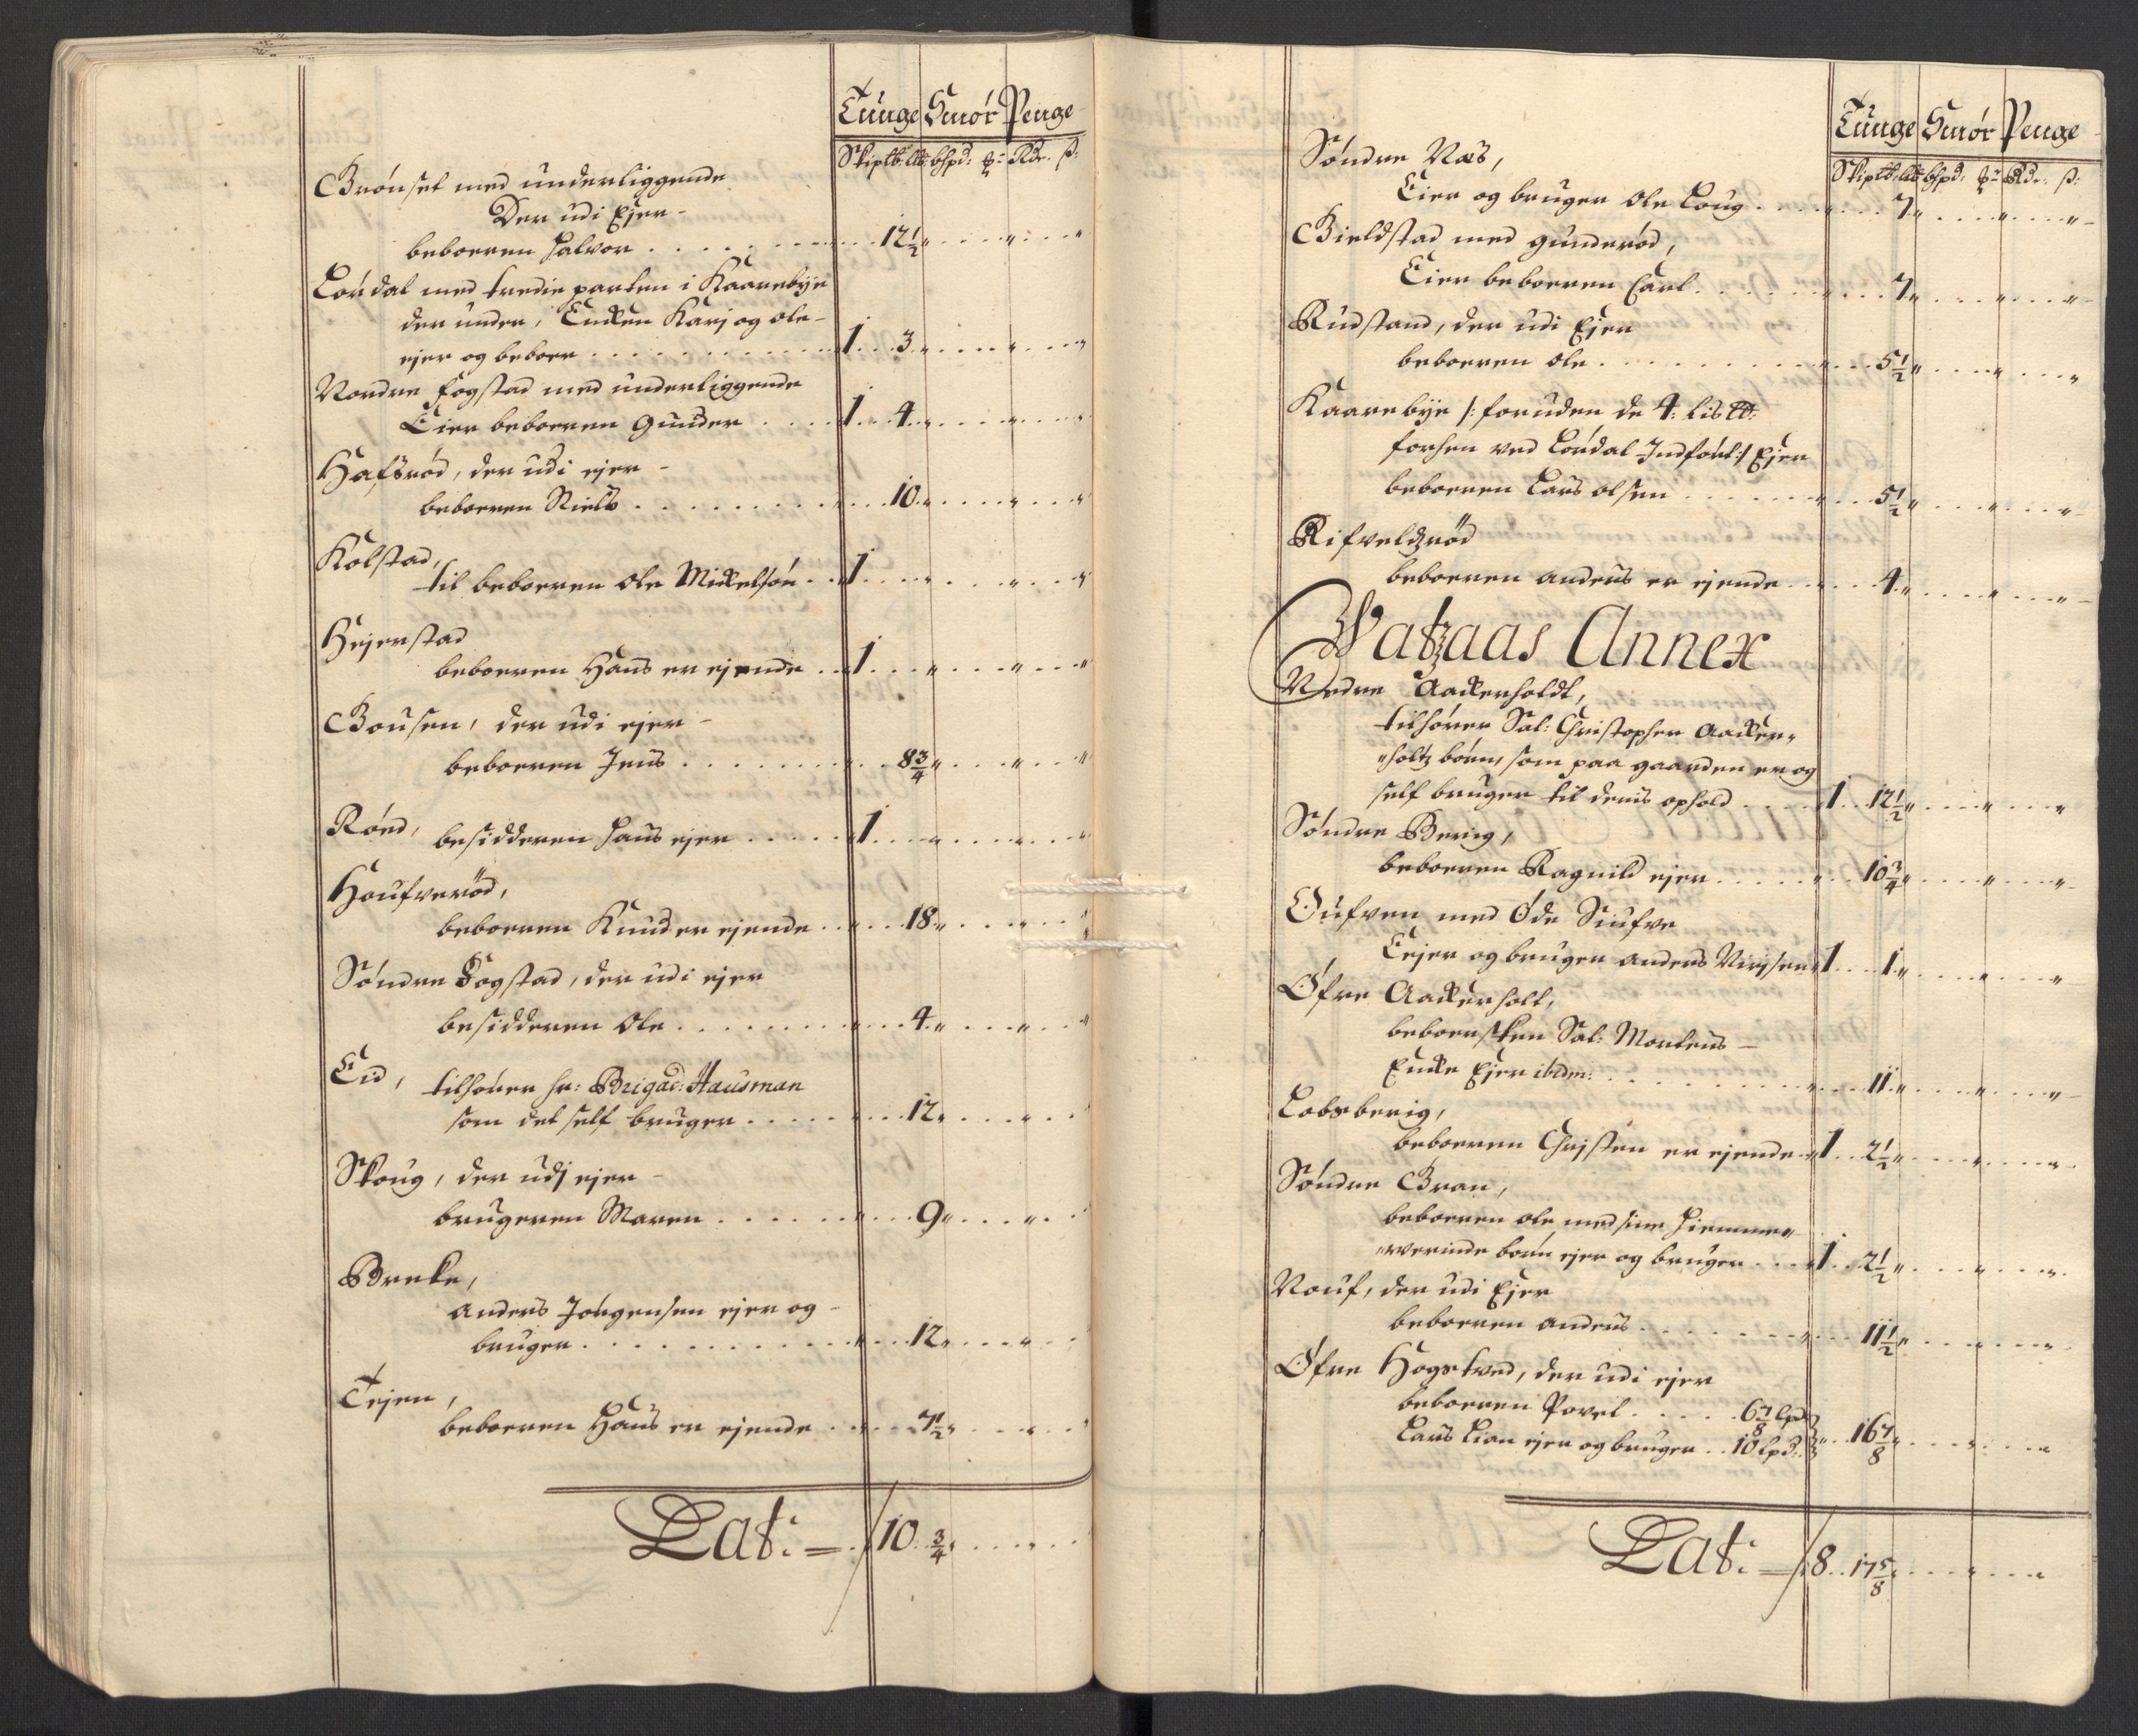 Tunge Smör Penge
Skiptb: lib: bhpd: ℔: Rdr. ß:
Brönset med underliggende
Der udi Ejer -
beboeren Halvor . . . . . . . 12½ " " "
Lördal med tredie parten i Kaarebÿe
der under, Encken Karj og ole -
ejer og beboer . . . . . . 1 . . 3 " " "
Nordre fogstad med underliggende
Eier beboeren Gunder . . . 1 . . 4 " " "
Hafsröd, der udi ejer -
beboeren Niels . . . . . . . 10 " " "
Kolstad,
til beboeren Ole Mickelsön . . 1 . . " " "
Hejerstad
beboeren Hans er ejende . . 1 . . " " "
Bousen, der udi ejer -
beboeren Jens . . . . . . " . . 8¾ " " "
Röed, besidderen Hans ejer . . . . . 1 . . " " "
Houfveröd,
beboeren Knud er ejende . . " . . 18 " " "
Söndre Fogstad, der udi ejer
besidderen Ole . . . . . . . " . . 4 " " "
Eid, tilhörer hr: Brigad: Hausman
som det self bruger . . . . . " . . 12 " "
Skoug, der udj ejer -
brugeren Maren . . . . . " . . 9 " "
Breke,
Anders Jörgensen ejer og -
bruger . . . . . . . . . " . . 12 " "
Tejen,
beboeren Hans er ejende . . " . . 7½ " "
Lat: = / 10 ¾ " "
Tunge Smör Penge
Skiptb: lib bhpd: ℔: Rdr: ß:
Söndre Næs,
Eier og bruger Ole Loug . . . . " . . 7 " " "
Bieldstad med gunderöd,
Eier beboeren Carl . . . . . " . . 7 " " "
Rudstand, der udi Ejer
beboeren Ole . . . . . . . " . . 5½ " " "
Kaarebÿe /: foruden de 4: lis ℔:
forhen ved Lördal Indfört :/ Ejer
beboeren Lars olsen . . . . . " . . 5½ " " "
Rifveldzröd
beboeren anders er ejende . . " . . 4 " " "
Watzaas Annex
Nedre Aackerholdt,
tilhörer Sal: Christopher Aacker-
"holtz börn, som paa gaarden er og
self bruger til deris ophold . . . . 1 . . 12½ " " "
Söndre Berig,
beboeren Ragnild ejer . . . . . " . . 10¾ " " "
Oufven med Öde Siufve
Eejer og bruger anders Nirisen 1 . . 1 " " "
Öfre Aackerholt,
beboersken Sal: Mortens -
Encke Ejer ibidm: . . . . . . . " . . 11 " " "
Lobsberig,
beboeren Christen er ejende . . 1 . . 2½ " " "
Söndre Bran,
beboeren ole med sine hiemme-
"werinde börn ejer og bruger . . . 1 . . 2½ " " "
Nouf, der udi Ejer
beboeren anders . . . . . . . " . . 11½ " " "
Öfre Hogstved, der udi ejer
beboeren Povel . . . . . 6⅞ lpd:
Lars Lian ejer og bruger . . 10 lpd: " . . 16⅞ " " "
Lat: = / 8 . . 17⅝ " " "